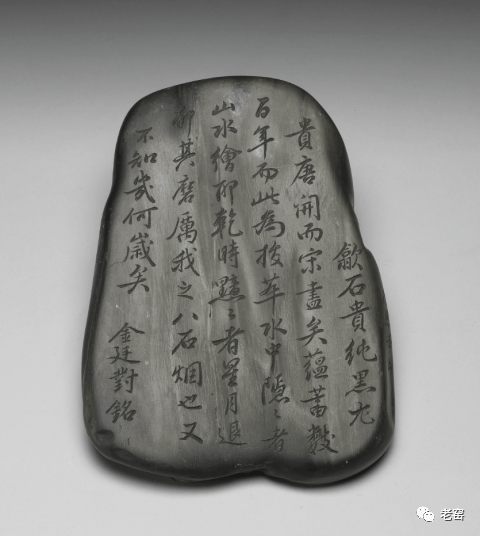 歙石貴純黑尤
貴唐開而宋盡矣蘊蓄數
百年而此為拔萃水中隱々者
山水繪抑乾時黯々者星月退
抑其磨厲我之八石烟也又
不知幾何歲矣
金廷對銘
老窑